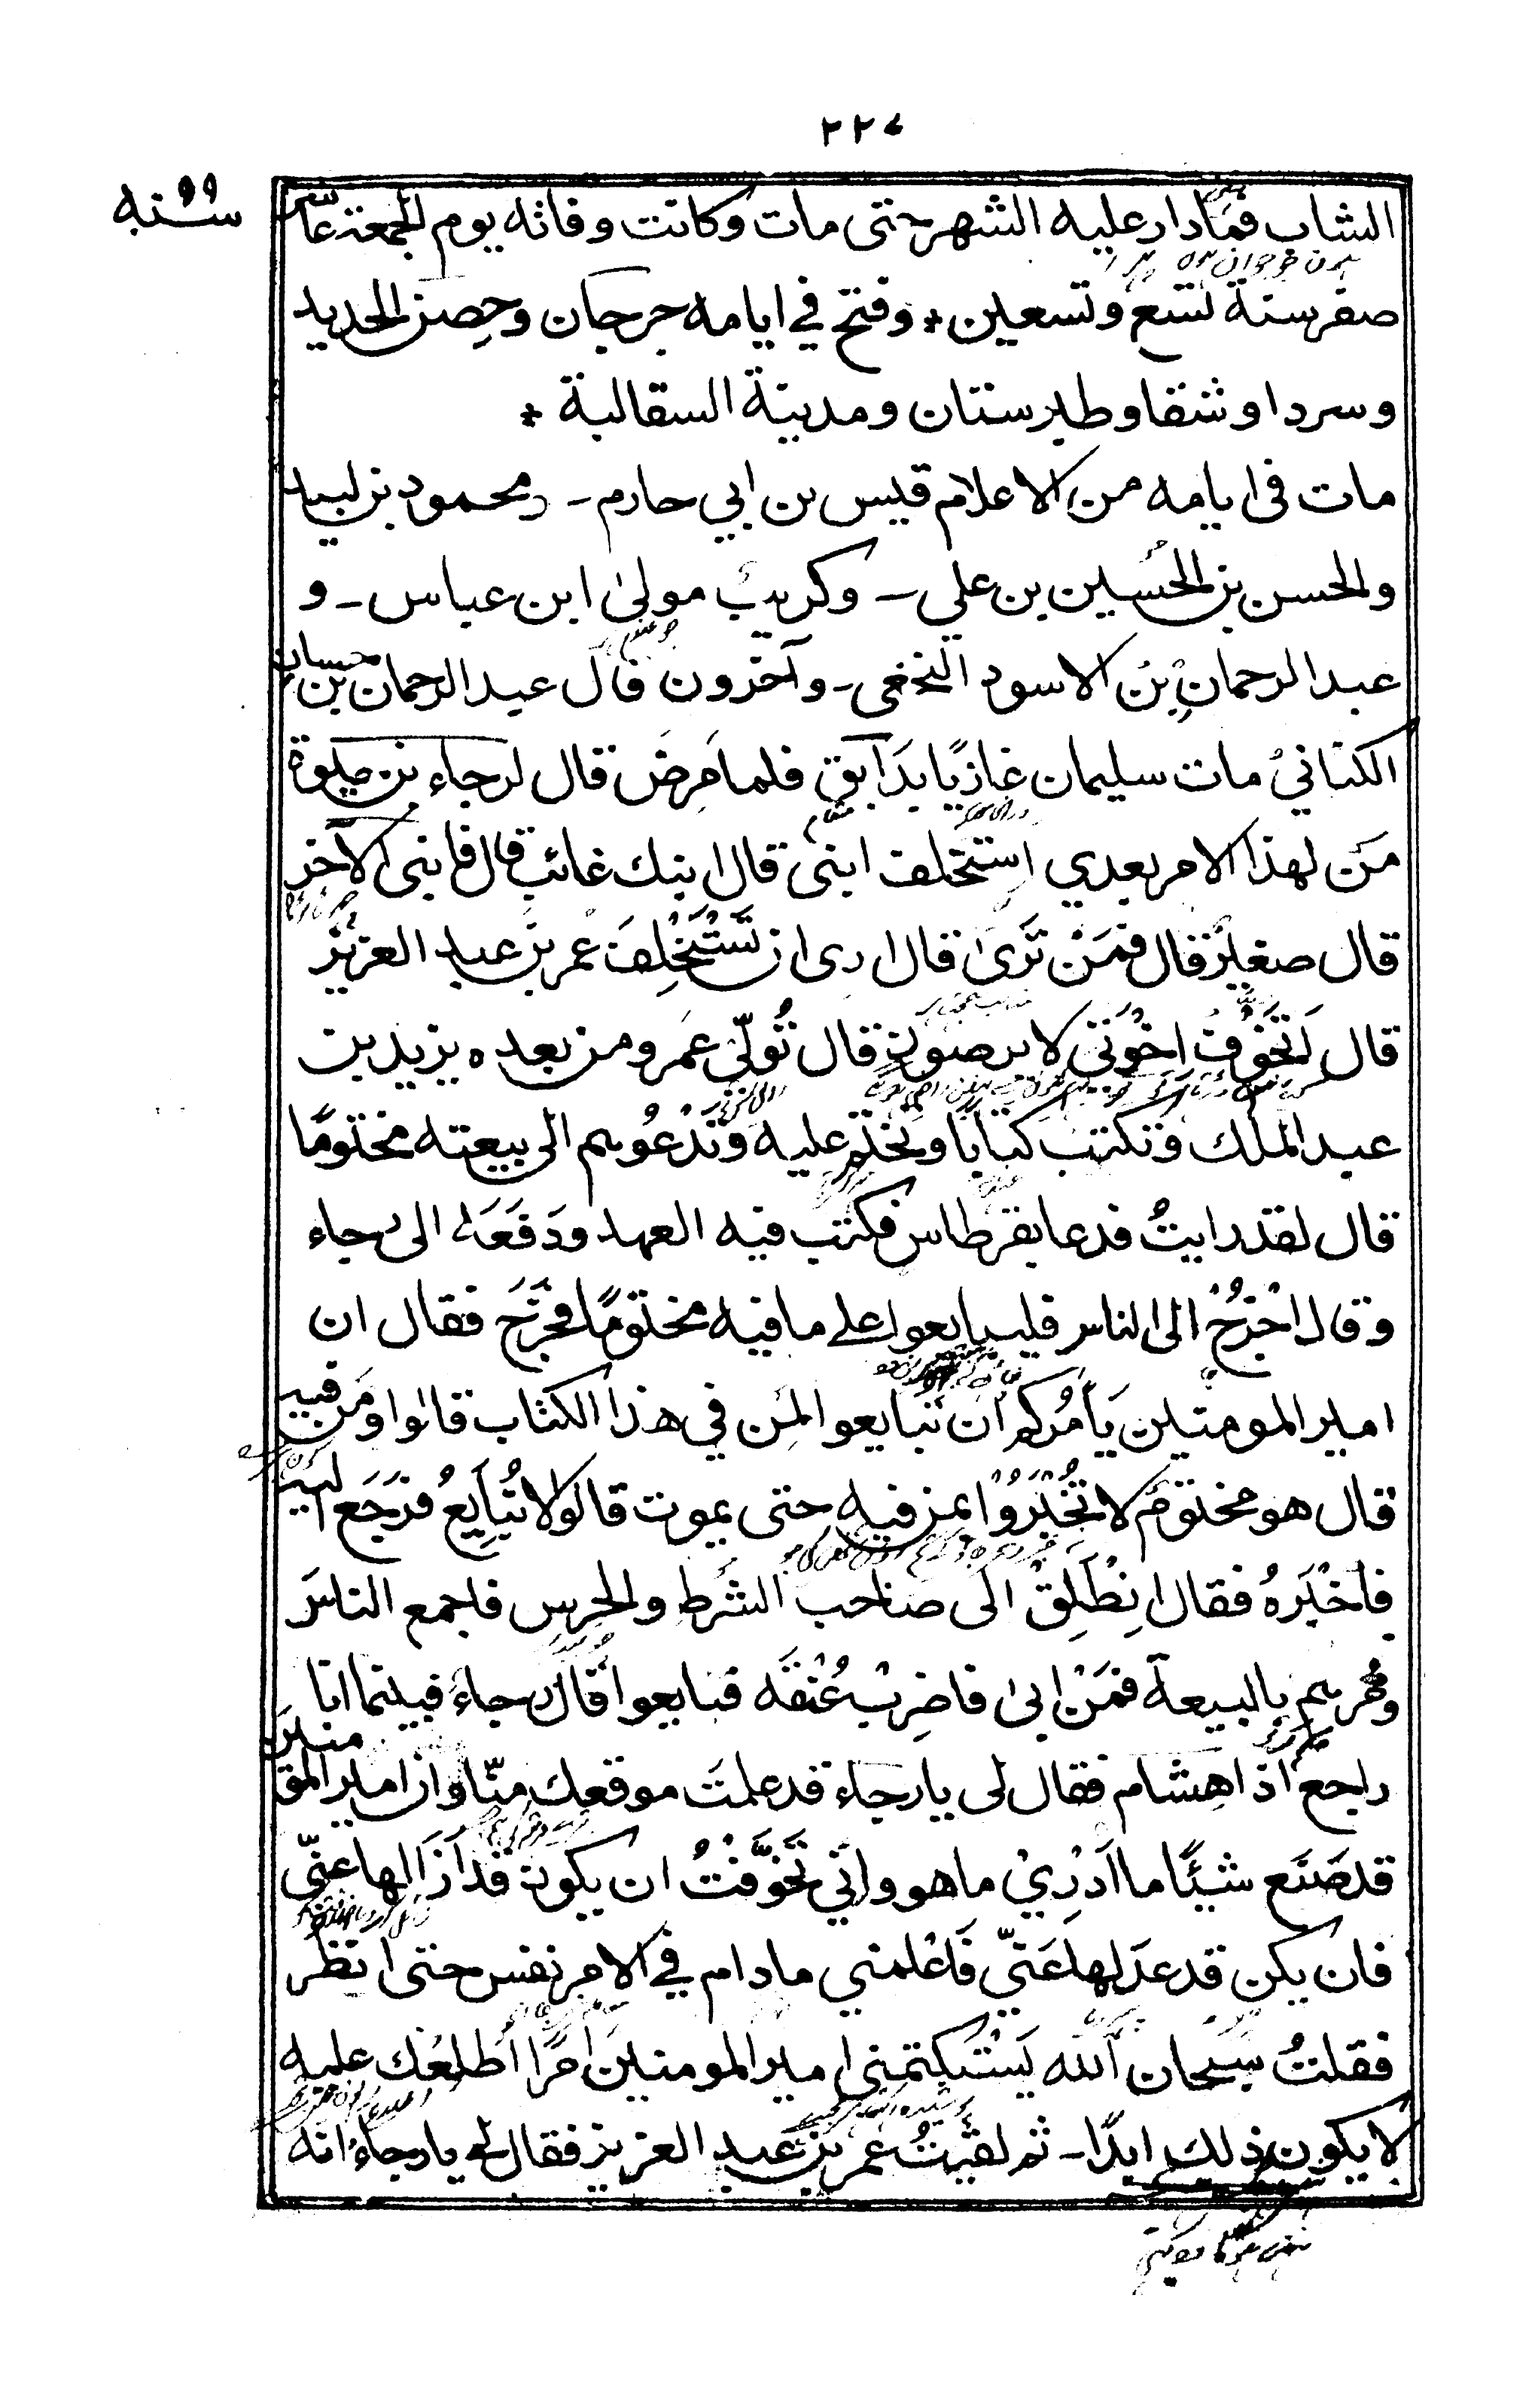 ٢٢٧
سنه ٩٩
الشاب فما دار عليه الشهر حتى مات وكانت وفاته يوم الجمعة عاشر
صفر سنة تسع وتسعين * وفتح في ايامه جرجان وحصن الحديد
وسردا وشقا وطبرستان ومدينة السقالبة *
مات فى ايامه من الاعلام قيس بن ابي حازم ـ ومحمود بن لبيد
والحسن بن الحُسين بن علي ـ وكريب مولىٰ ابن عباس ـ و
عبد الرحمانِ بْن الاسود النخعى ـ وآخرون قال عبد الرحمان بن حسان
الكنانيُ مات سليمان غازيًا بدَابق فلما مَرِضَ قال لرجاء بن حيٰوة
مَن لهذا الامر بعدي استخلف ابنى قال ابنك غائب قال فابنى الآخر
قال صغيرٌ قال فمَنْ تَرَىٰ قال ارى ان تَسْتَخْلِفَ عُمر بن عبد العزيز
قال اَتَخَوَّفُ اِخْوَتي لا يرضون قال تُوَلّي عمَر ومن بعده يزيد بن
عبد الملك وتكتب كتابًا وتختم عليه وتَدْعُوهم الى بيعته مختومًا
قال لقد رايتُ فدعا بقرطاس فكتب فيه العهد ودَفَعَه الى رجاء
وقال اُخْرُجْ الى الناس فليبايعوا على ما فيه مختومًا فخَرَجَ فقال ان
امير المومنين يَأمُركم ان تبايعوا لمَن في هذا الكتاب قالوا ومَن فيه
قال هو مختومٌ لا تُخْبَرُوْا بمن فيه حتى يموت قالوا لا نُبايِعُ فرَجَعَ اليه
فاَخْبَرَهُ فقال اِنْطَلِقْ الى صاحب الشُرَط والحرس فاجمع الناسَ
ومُرهم بالبيعة فمَنْ ابىٰ فاضرِبْ عُنْقَه فبايعوا قال رجاءٌ فبينما انا
راجع اذا هِشام فقال لى يا رجاء قد علمتَ موقعك منّا وان امير المومنين
قد صَنَع شيئًا ما اَدْرِيْ ما هو وانّي تَخَوَّفْتُ ان يكون قد اَزَالها عنّى
فان يكن قد عدَلها عَنّي فَاَعْلمني ما دام في الامر نفس حتى انظر
فقلتُ سبحان الله يَسْتكتمنى امير المومنين اَمرًا اُطلعُك عليه
لا يكون ذلك ابدًا ـ ثم لقيتُ عُمر بن عبد العزيز فقال لي يا رجاءُ انه